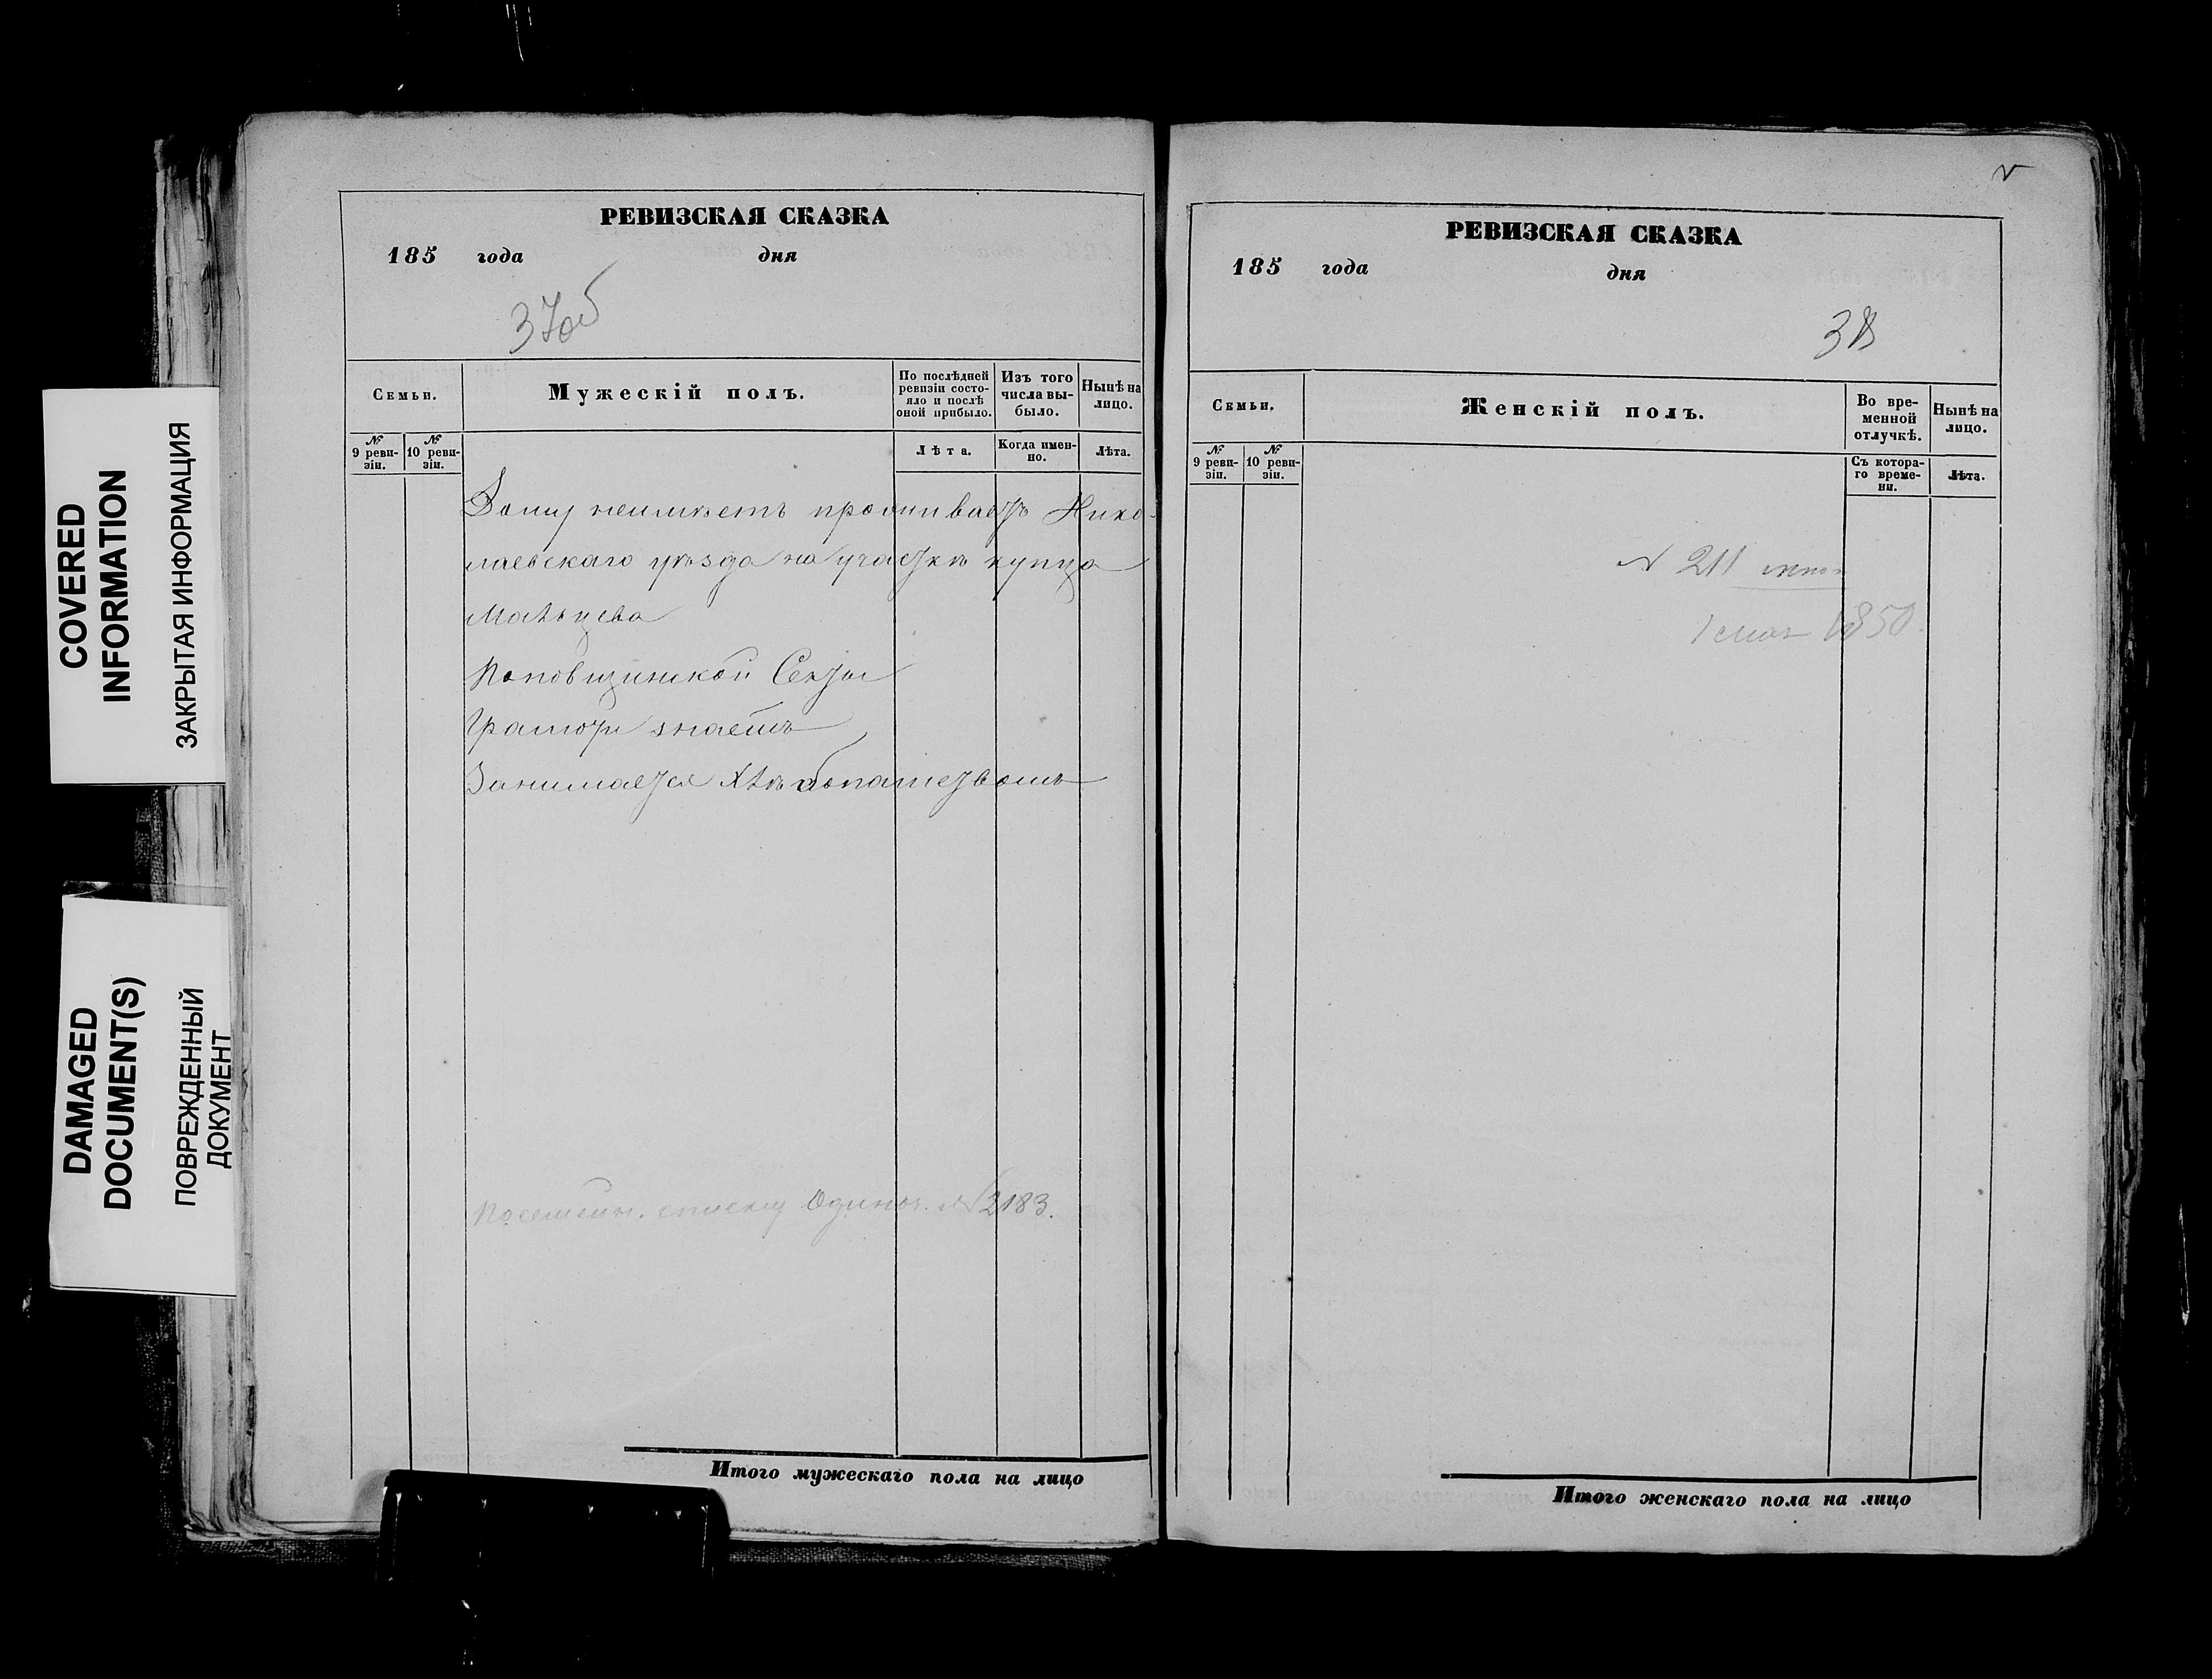 COVERED
INFORMATION
ЗАКРЫТАЯ ИНФОРМАЦИЯ
DAMAGED
DOCUMENT(S)
ПОВРЕЖДЕННЫЙ
ДОКУМЕНТ
РЕВИЗСКАЯ СКАЗКА
185 года дня
37об
Семьи.
Мужескій полъ.
По послѣдней
ревизіи состо-
яло и послѣ
оной прибыло.
Изъ того
числа вы-
было.
Нынѣ на
лицо.
№
9 реви-
зіи.
№
10 реви-
зіи.
Лѣта.
Когда имен-
но.
Лѣта.
Дому неимѣетъ проживаетъ Нико-
лаевскаго уѣзда на участкѣ купца
Мальцева
Поповщинской Секты
Грамоту знаетъ
Занимается Хлѣбопашествомъ
Посемейн. списку Одинок. №2183.
Итого мужескаго пола на лицо
РЕВИЗСКАЯ СКАЗКА
185 года дня
38
Семьи.
Женскій полъ.
Во вре-
менной
отлучкѣ.
Нынѣ на
лицо.
№
9 реви-
зіи.
№
10 реви-
зіи.
Съ котора-
го време-
ни.
Лѣта.
№ 211
1850
Итого женскаго пола на лицо